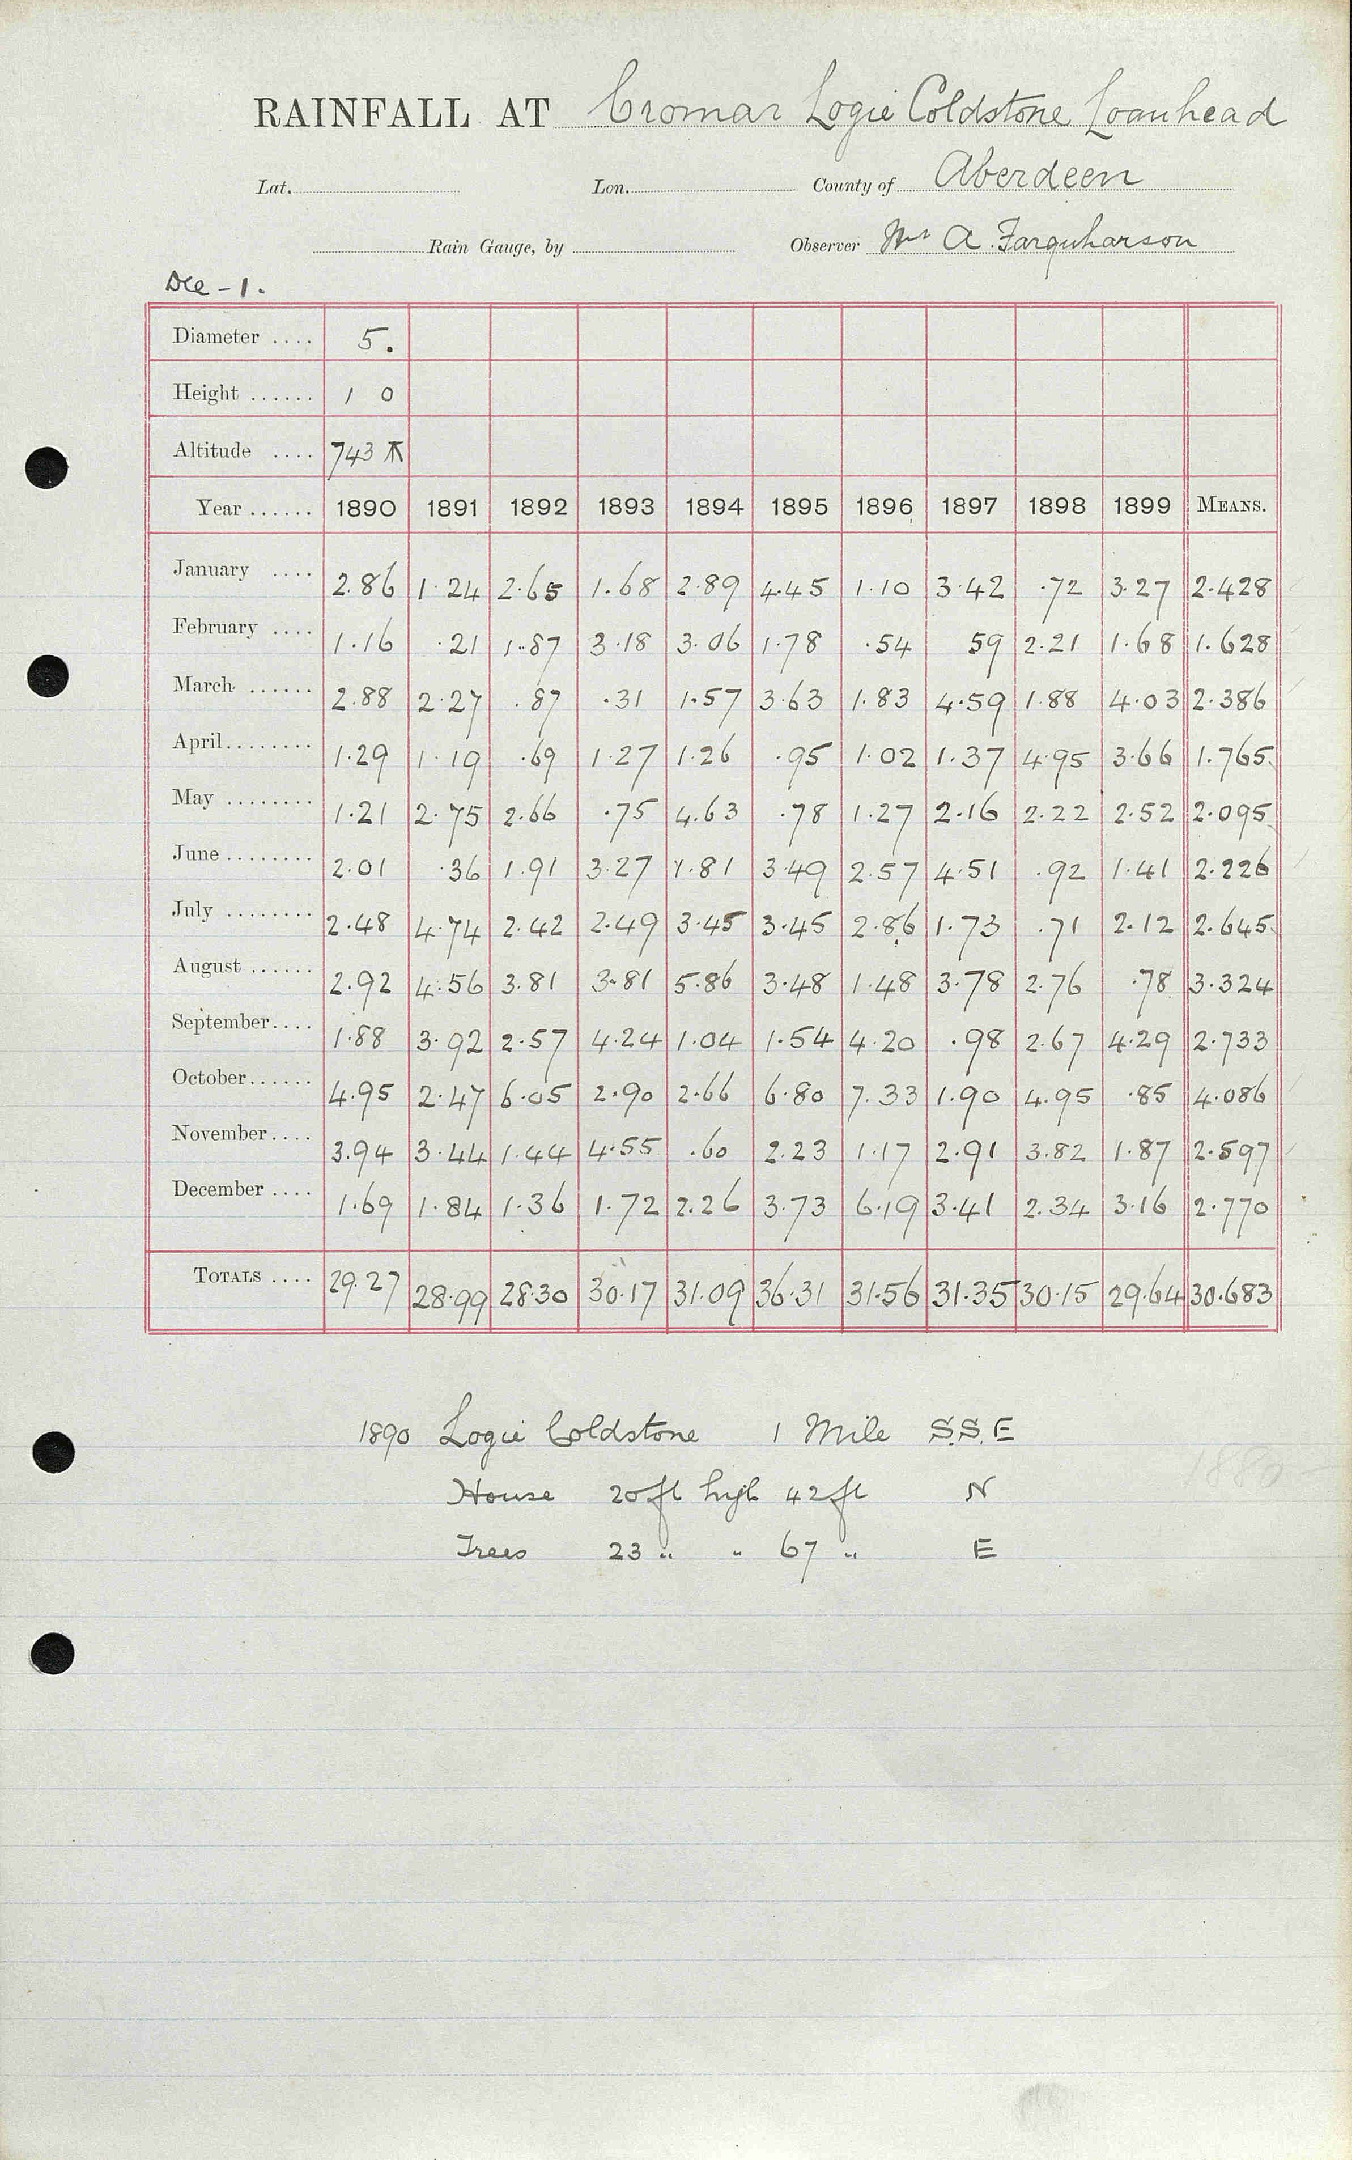 RAINFALL AT Cromar Logie Coldstone Loanhead
Lat. Lon. County of Aberdeen
Rain Gauge, by Observer Mr A. Farquharson
Dce - 1.
Diameter .... 5.
Height ...... 1 0
Altitude .... 743
Year ...... 1890 1891 1892 1893 1894 1895 1896 1897 1898 1899 MEANS.
January .... 2.86 1.24 2.65 1.68 2.89 4.45 1.10 3.42 .72 3.27 2.428
February .... 1.16 .21 1.87 3.18 3.06 1.78 .54 59 2.21 1.68 1.628
March ...... 2.88 2.27 .87 .31 1.57 3.63 1.83 4.59 1.88 4.03 2.386
April ........ 1.29 1.19 .69 1.27 1.26 .95 1.02 1.37 4.95 3.66 1.765
May ........ 1.21 2.75 2.66 .75 4.63 .78 1.27 2.16 2.22 2.52 2.095
June ........ 2.01 .36 1.91 3.27 1.81 3.49 2.57 4.51 .92 1.41 2.226
July ........ 2.48 4.74 2.42 2.49 3.45 3.45 2.86 1.73 .71 2.12 2.645
August ...... 2.92 4.56 3.81 3.81 5.86 3.48 1.48 3.78 2.76 .78 3.324
September .... 1.88 3.92 2.57 4.24 1.04 1.54 4.20 .98 2.67 4.29 2.733
October ...... 4.95 2.47 6.05 2.90 2.66 6.80 7.33 1.90 4.95 .85 4.086
November .... 3.94 3.44 1.44 4.55 .60 2.23 1.17 2.91 3.82 1.87 2.597
December .... 1.69 1.84 1.36 1.72 2.26 3.73 6.19 3.41 2.34 3.16 2.770
TOTALS .... 29.27 28.99 28.30 30.17 31.09 36.31 31.56 31.35 30.15 29.64 30.683
1890 Logie Coldstone 1 Mile S.S.E
1880 -
House 20 ft high 42 ft N
Trees 23 " " 67 " E